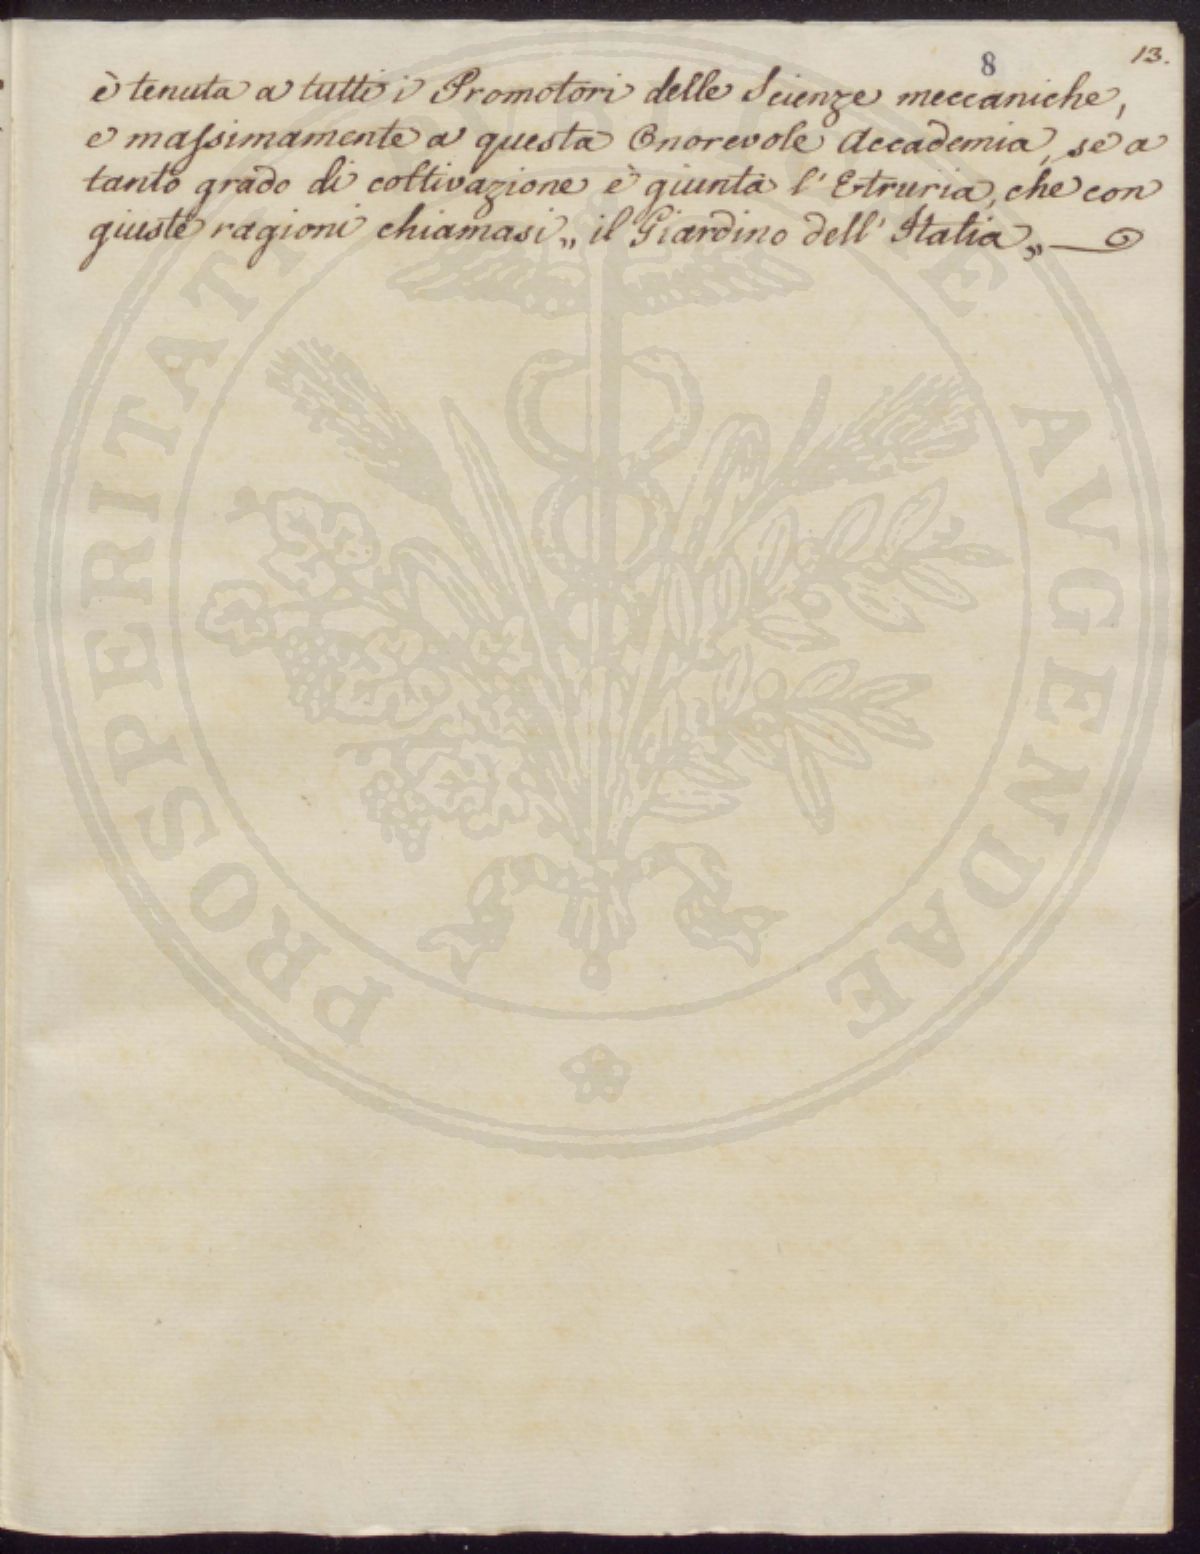 8
13.
è tenuta a tutti i Promotori delle Scienze meccaniche,
e massimamente a questa Onorevole Accademia, se a
tanto grado di coltivazione è giunta l'Etruria, che con
giuste ragioni chiamasi „ il Giardino dell' Italia „
PROSPERITATI PVBLICAE AVGENDAE